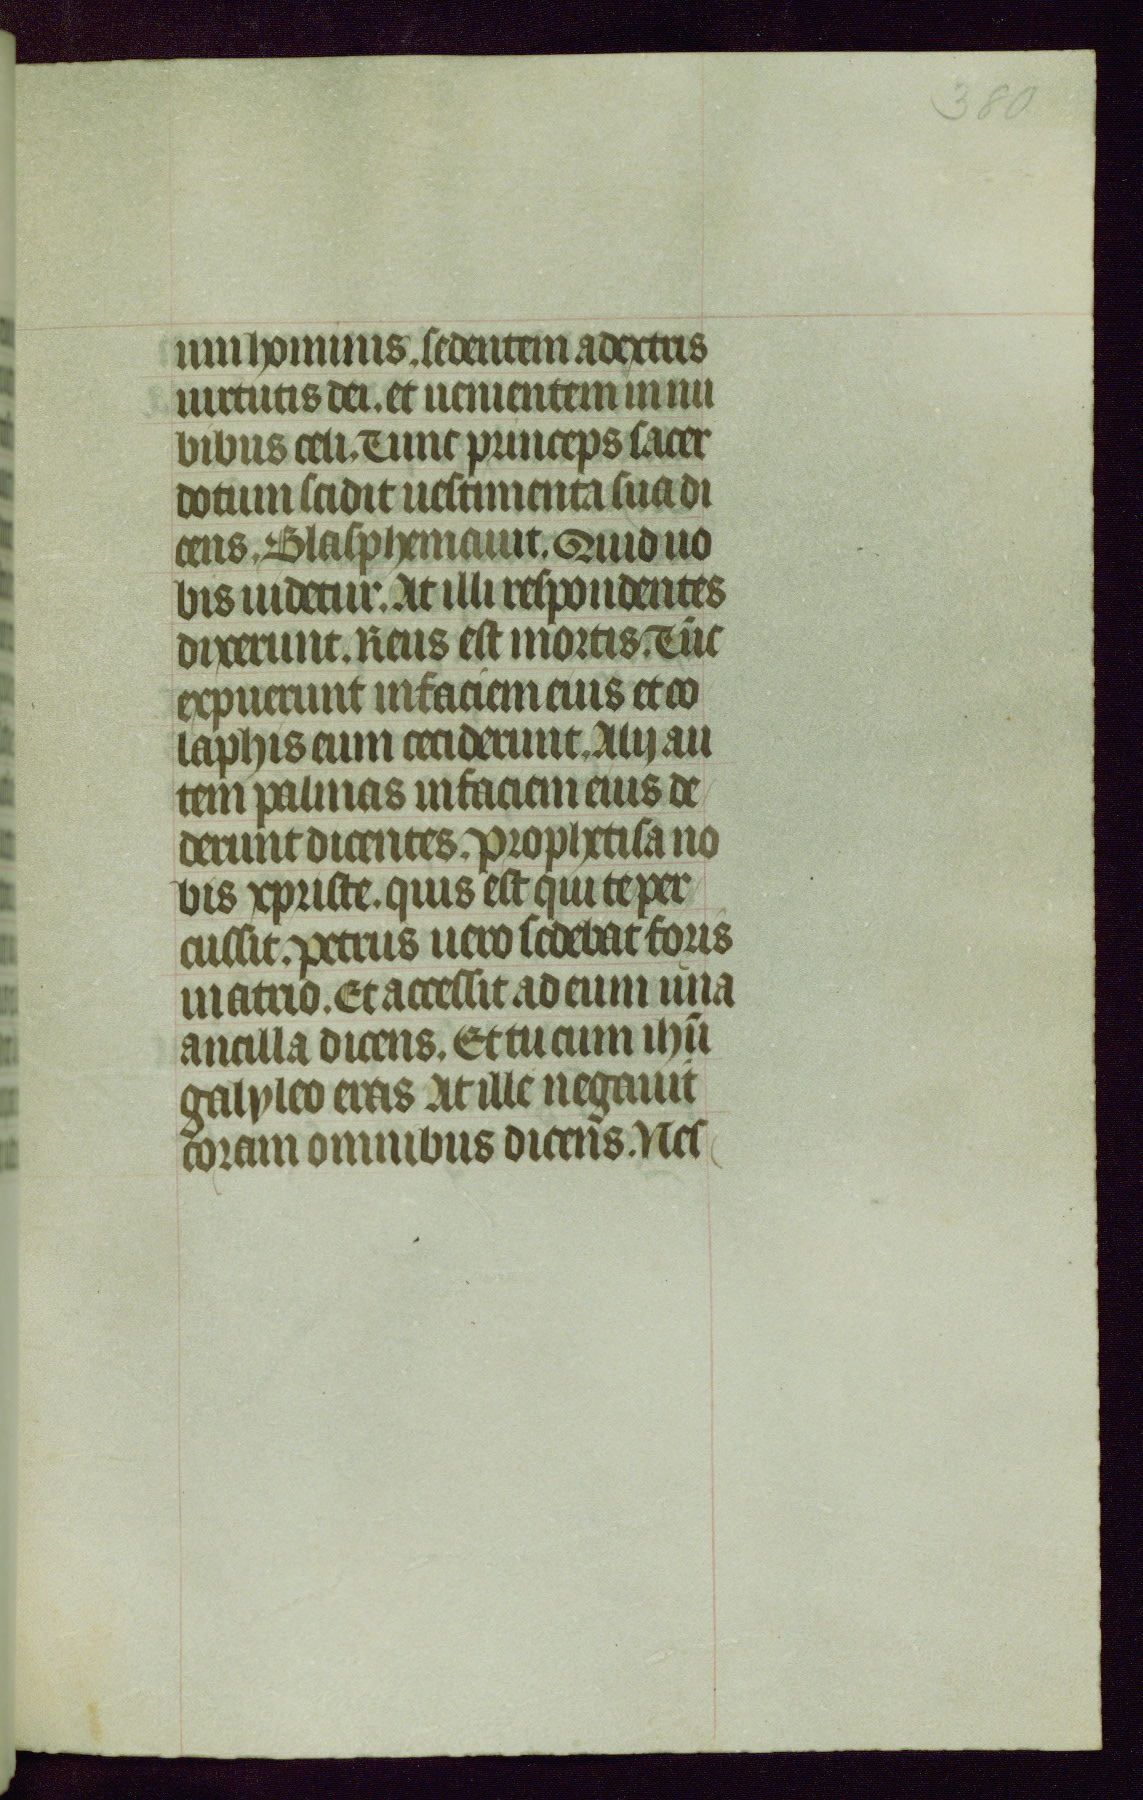 380
um hominis. sedentem a dextris
uirtutis dei. et uenientem in nu
bibus celi. Tunc princeps sacer
dotum scidit uestimenta sua di
cens. Blasphemauit. Quid uo
bis uidetur. At illi respondentes
dixerunt. Reus est mortis. Tūc
expuerunt in faciem eius et co
laphis eum ceciderunt. Alij au
tem palmas in faciem eius de
derunt dicentes. Prophetisa no
bis xpriste. quis est qui te per
cussit. Petrus uero sedebat foris
in atrio. Et accessit ad eum una
ancilla dicens. Et tu cum ihū
galyleo eras At ille negauit
coram omnibus dicens. Nes